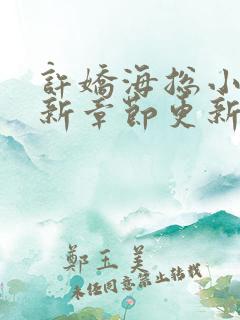 許嬌海總小
新章節更新
鄭玉美
未经同意禁止转载